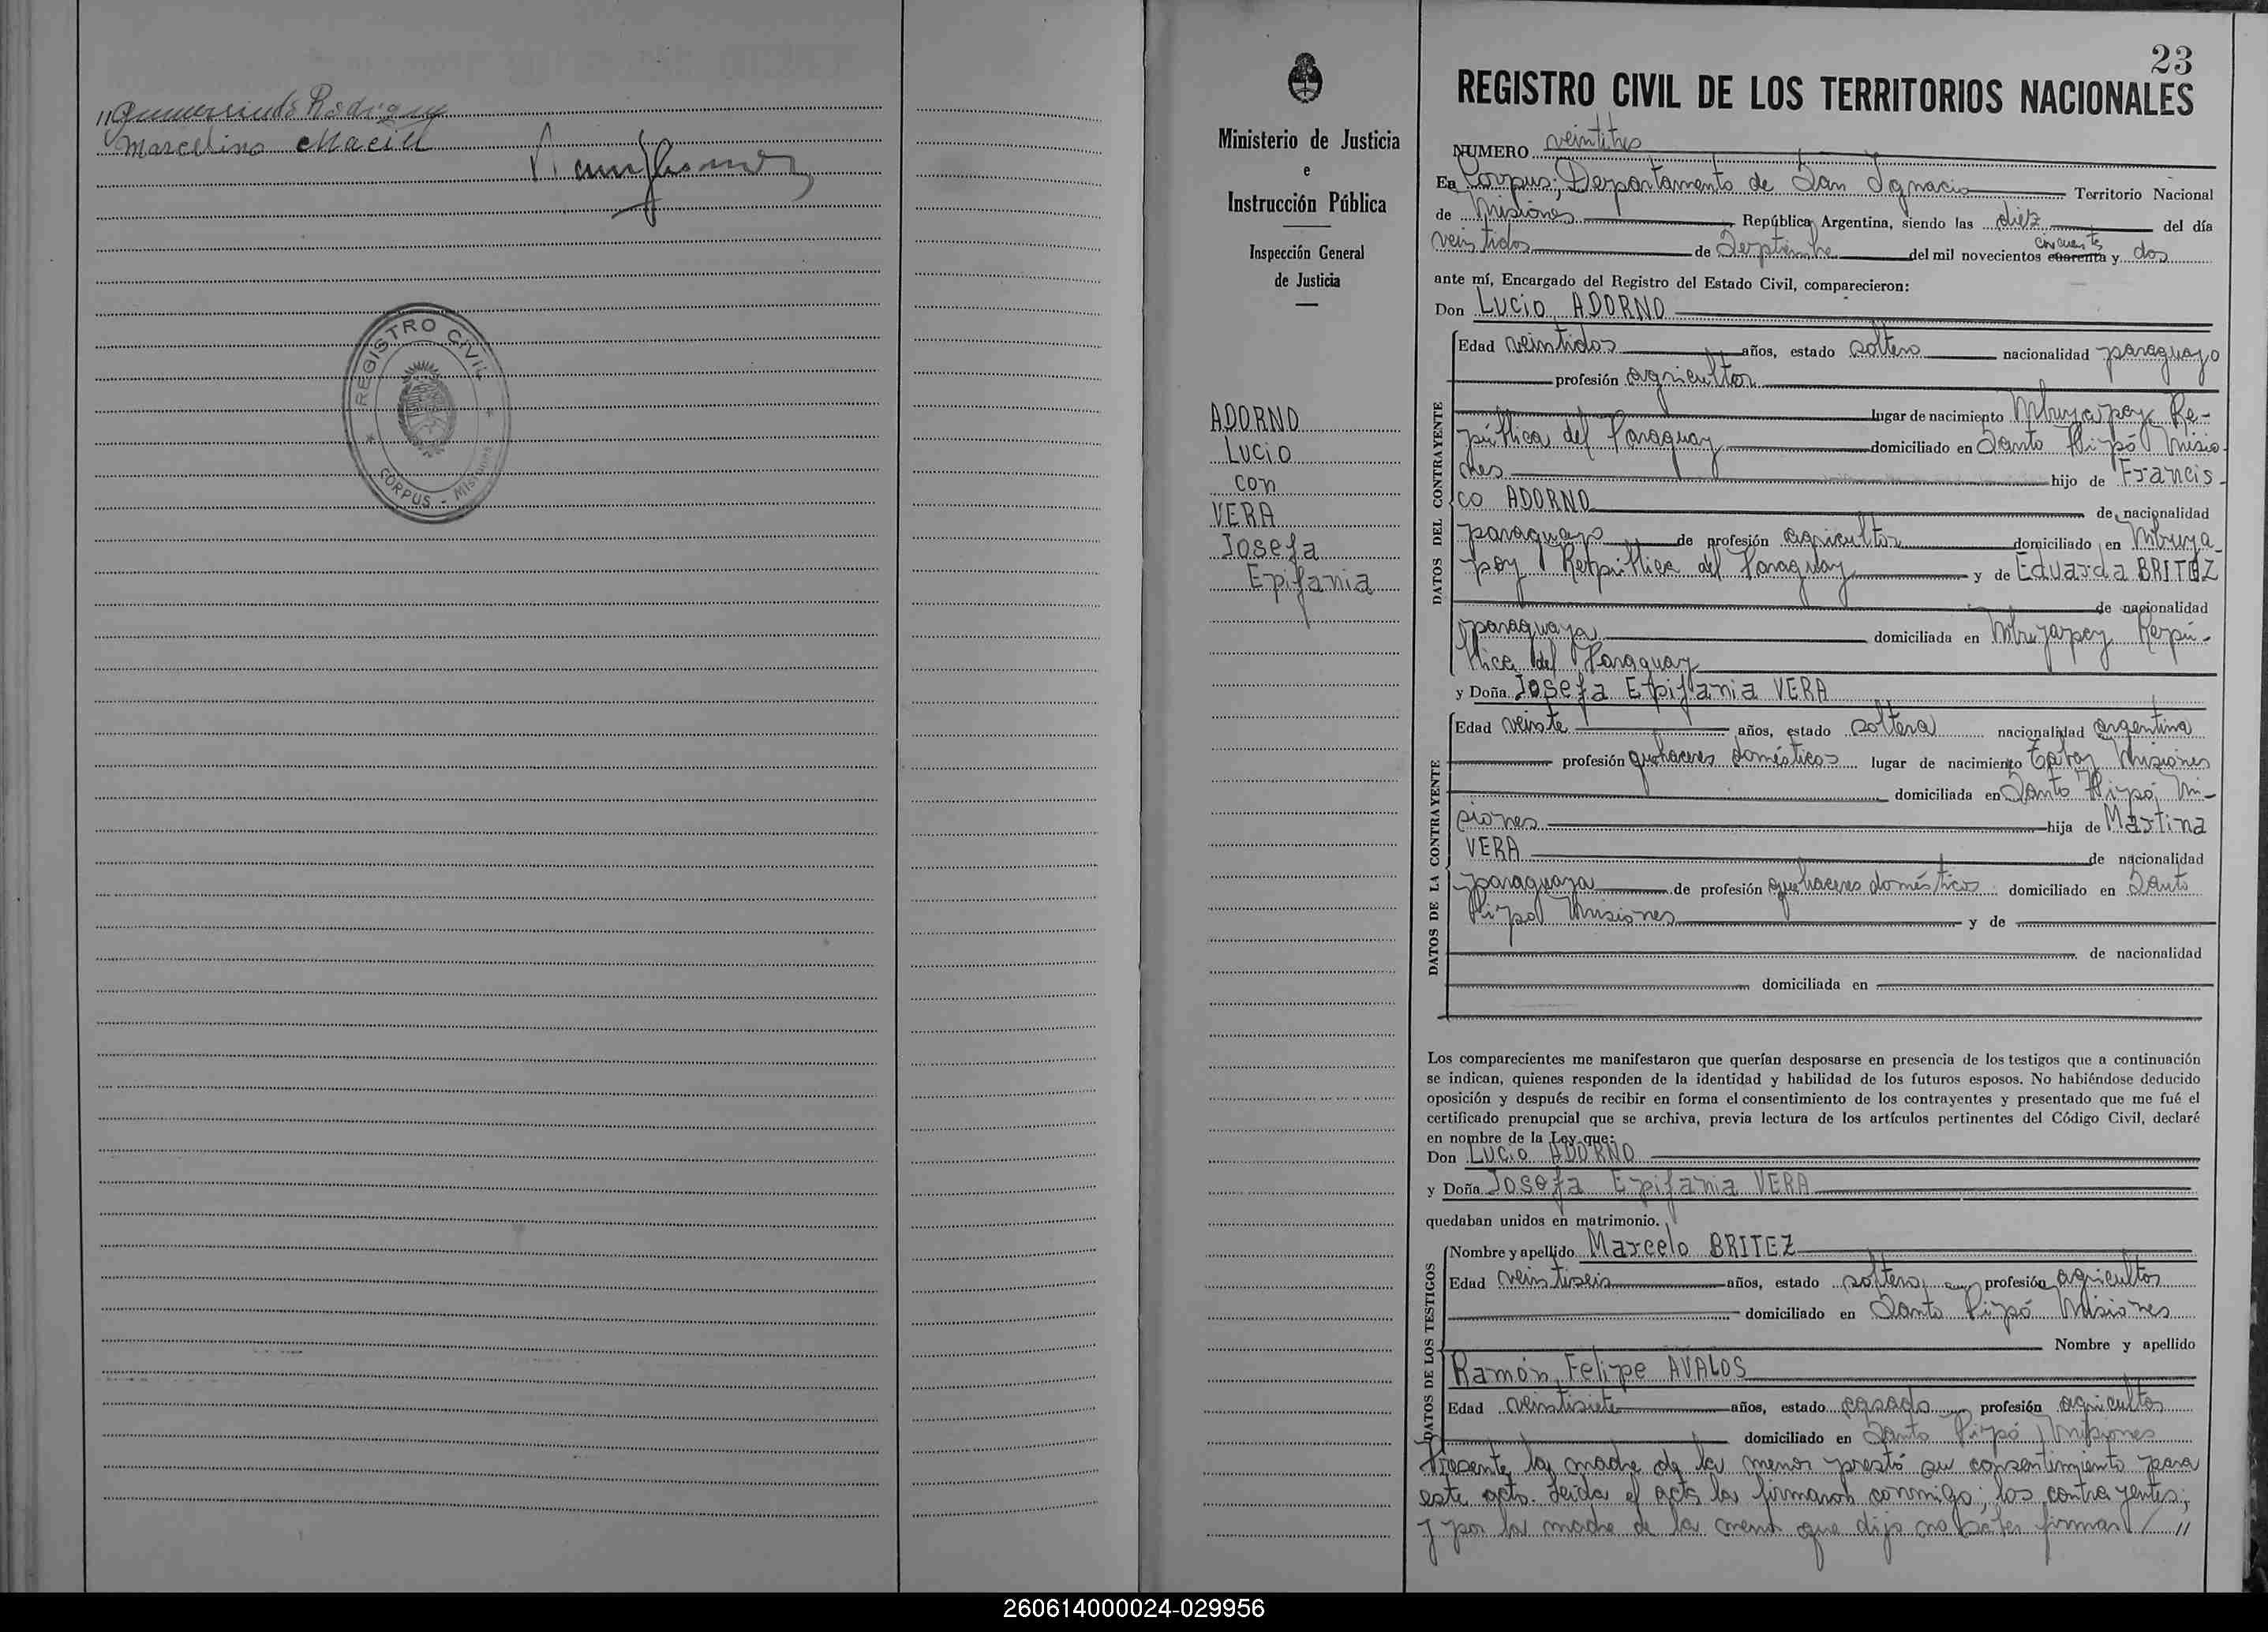 Rodriguez
Marcelino Maciel
REGISTRO CIVIL
CORPUS - Misiones
Ministerio de Justicia
e
Instrucción Pública
Inspección General
de Justicia
ADORNO
Lucio
con
VERA
Josefa
Epifania
23
REGISTRO CIVIL DE LOS TERRITORIOS NACIONALES
NUMERO veintitres
En Corpus, Departamento de San Ignacio Territorio Nacional
de Misiones República Argentina, siendo las diez del día
veintidos de Septiembre del mil novecientos cuarenta cincuenta y dos
ante mí, Encargado del Registro del Estado Civil, comparecieron:
Don Lucio ADORNO
DATOS DEL CONTRAYENTE
Edad veintidos años, estado soltero nacionalidad paraguayo
profesión agricultor
lugar de nacimiento Mbuyapey Re-
pública del Paraguay domiciliado en Santo Pipó Misio-
nes hijo de Francis-
co ADORNO de nacionalidad
paraguayo de profesión agricultor domiciliado en Mbuya-
pey República del Paraguay y de Eduarda BRITEZ
de nacionalidad
paraguaya domiciliada en Mbuyapey Repú-
blica del Paraguay
y Doña Josefa Epifania VERA
DATOS DE LA CONTRAYENTE
Edad veinte años, estado soltera nacionalidad argentina
profesión quehaceres domésticos lugar de nacimiento Tabay Misiones
domiciliada en Santo Pipó, Mi-
siones hija de Martina
VERA de nacionalidad
paraguaya de profesión quehaceres domésticos domiciliado en Santo
Pipó Misiones y de
de nacionalidad
domiciliada en
Los comparecientes me manifestaron que querían desposarse en presencia de los testigos que a continuación
se indican, quienes responden de la identidad y habilidad de los futuros esposos. No habiéndose deducido
oposición y después de recibir en forma el consentimiento de los contrayentes y presentado que me fué el
certificado prenupcial que se archiva, previa lectura de los artículos pertinentes del Código Civil, declaré
en nombre de la Ley que:
Don Lucio ADORNO
y Doña Josefa Epifania VERA
quedaban unidos en matrimonio.
DATOS DE LOS TESTIGOS
Nombre y apellido Marcelo BRITEZ
Edad veintiseis años, estado soltero profesión agricultor
domiciliado en Santo Pipó Misiones
Nombre y apellido
Ramón Felipe AVALOS
Edad veintisiete años, estado casado profesión agricultor
domiciliado en Santo Pipó Misiones
Presente la madre de la menor prestó su consentimiento para
este acto. Leida el acta la firmaron conmigo, los contrayentes;
y por la madre de la menor que dijo no saber firmar //
260614000024-029956